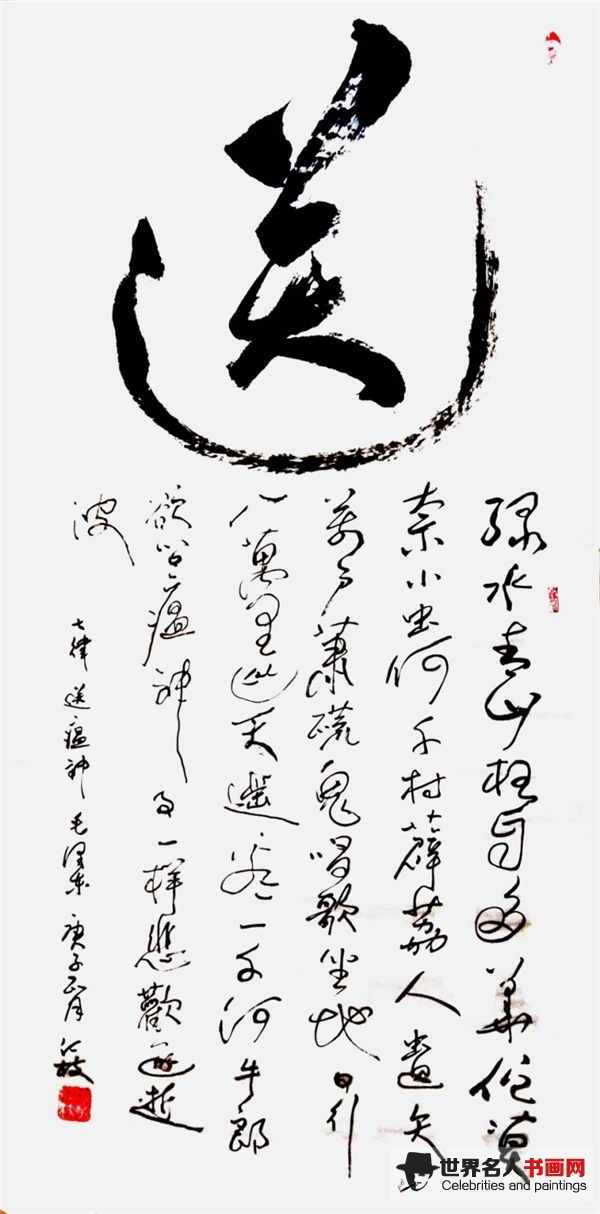 送
绿水青山枉自多華佗莫
奈小虫何千村薜荔人遗矢
萬户蕭疏鬼唱歌坐地日行
八萬里巡天遥看一千河牛郎
欲问瘟神事一样悲歡逐逝
波
七律 送瘟神 毛泽东 庚子正月
世界名人书画网
Celebrities and paintings